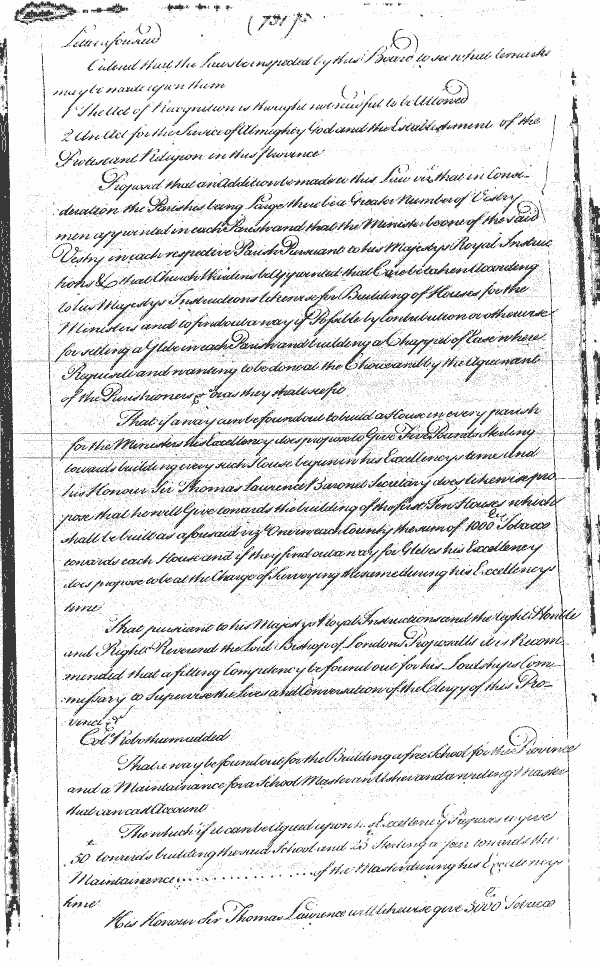 (731)
Letter found
Ordered that the Laws be inspected by this Board to see what remarks
may be made upon them
1 The Act of Recognition is thought not needful to be Altered
2 An Act for the Service of Almighty God and the Establishment of the
Protestant Religion in this Province
Proposed that an Addition be made to this Law viz that in Consi-
deration the Parishes being Large there be a Greater Number of Vestry
men appointed in each Parish and that the Minister be one of the said
Vestry in each respective Parish Pursuant to his Majestys Royal Instruc
tions & that Church Wardens be Appointed that Care be taken According
to his Majestys Instructions likewise for Building of Houses for the
Ministers and to find out a way if Possible by Contribution or otherwise
for setling a Glebe in each Parish and building a Chappel of Ease where
Requisite and wanting to be done at the Choice and by the Agreement
of the Parishioners or as they shall see fit
That if a way can be found out to build a House in every parish
for the Ministers his Excellency does propose to Give Five Pounds Sterling
towards building every such House begun in his Excellencys time And
his Honour Sir Thomas Lawrence Baronet Secretary does likewise pro
pose that he will Give towards the building of the first Ten Houses which
shall be built as aforesaid viz One in each County the sum of 1000 lbs Tobacco
towards each House and if they find out a way for Glebes his Excellency
does propose to be at the Charge of Surveying the same during his Excellencys
time
That pursuant to his Majestys Royal Instructions and the right Honble
and Right Reverend the Lord Bishop of Londons Proposalls it is Recom-
mended that a fitting Competency be found out for his Lordships Com-
missary to Supervise the lives and Conversation of the Clergy of this Pro-
vince
Colo Robotham added
That a way be found out for the Building a free School for the Province
and a Maintainance for a School Master an Usher and a writing Master
that can cast Account
The which if it can be Agreed upon his Excellency Proposes to give
50 £ towards building the said School and 25 £ Sterling a year towards the
Maintainance .................. of the Master during his Excellencys
time
His Honour Sir Thomas Lawrence will likewise give 5000 lbs Tobacco